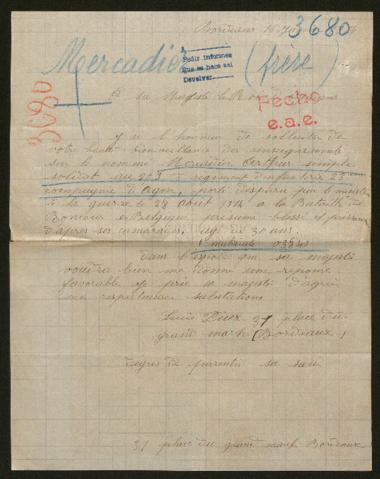 Bordeaux
3680
Mercadier (frère)
Pedir informes
que se hace así
Devolver
3680
a sa Majesté le Roi
Fecho
e.a.e.
J'ai l'honneur de solliciter de
votre haute bienveillance des renseignements
sur le nommé Mercadier simple
soldat au régiment d'infanterie 23e
compagnie d'Agen, porté disparu par le ministre
de la guerre le 28 août 1914 a la Bataille de
en Belgique présumé blessé et prisonnier
d'après ses camarades, âgé de 30 ans.
Nº matricule
Dans l'espoir que sa majesté
voudra bien me donner une réponse
favorable je prie sa majesté d'agréer
ma respectueuse salutations
Lucie 37 place du
grand marché (Bordeaux)
degré de parenté sa sœur
37 place du grand marché Bordeaux